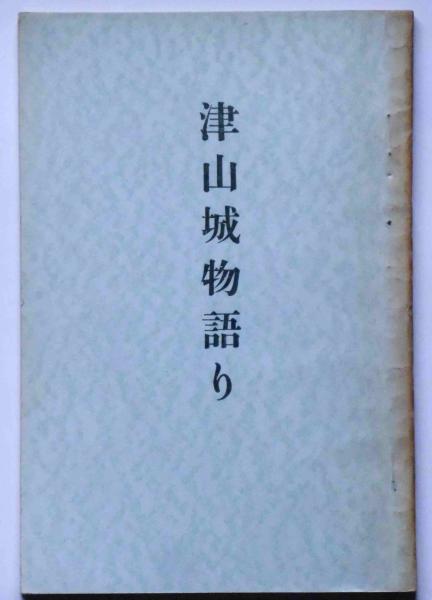 津山城物語り